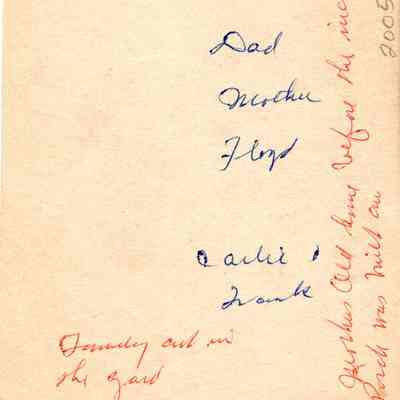 Dad
Mother
Floyd
Carlie &
Frank
Family out in
the yard
Mothers Old home before the
Porch was built on
2005